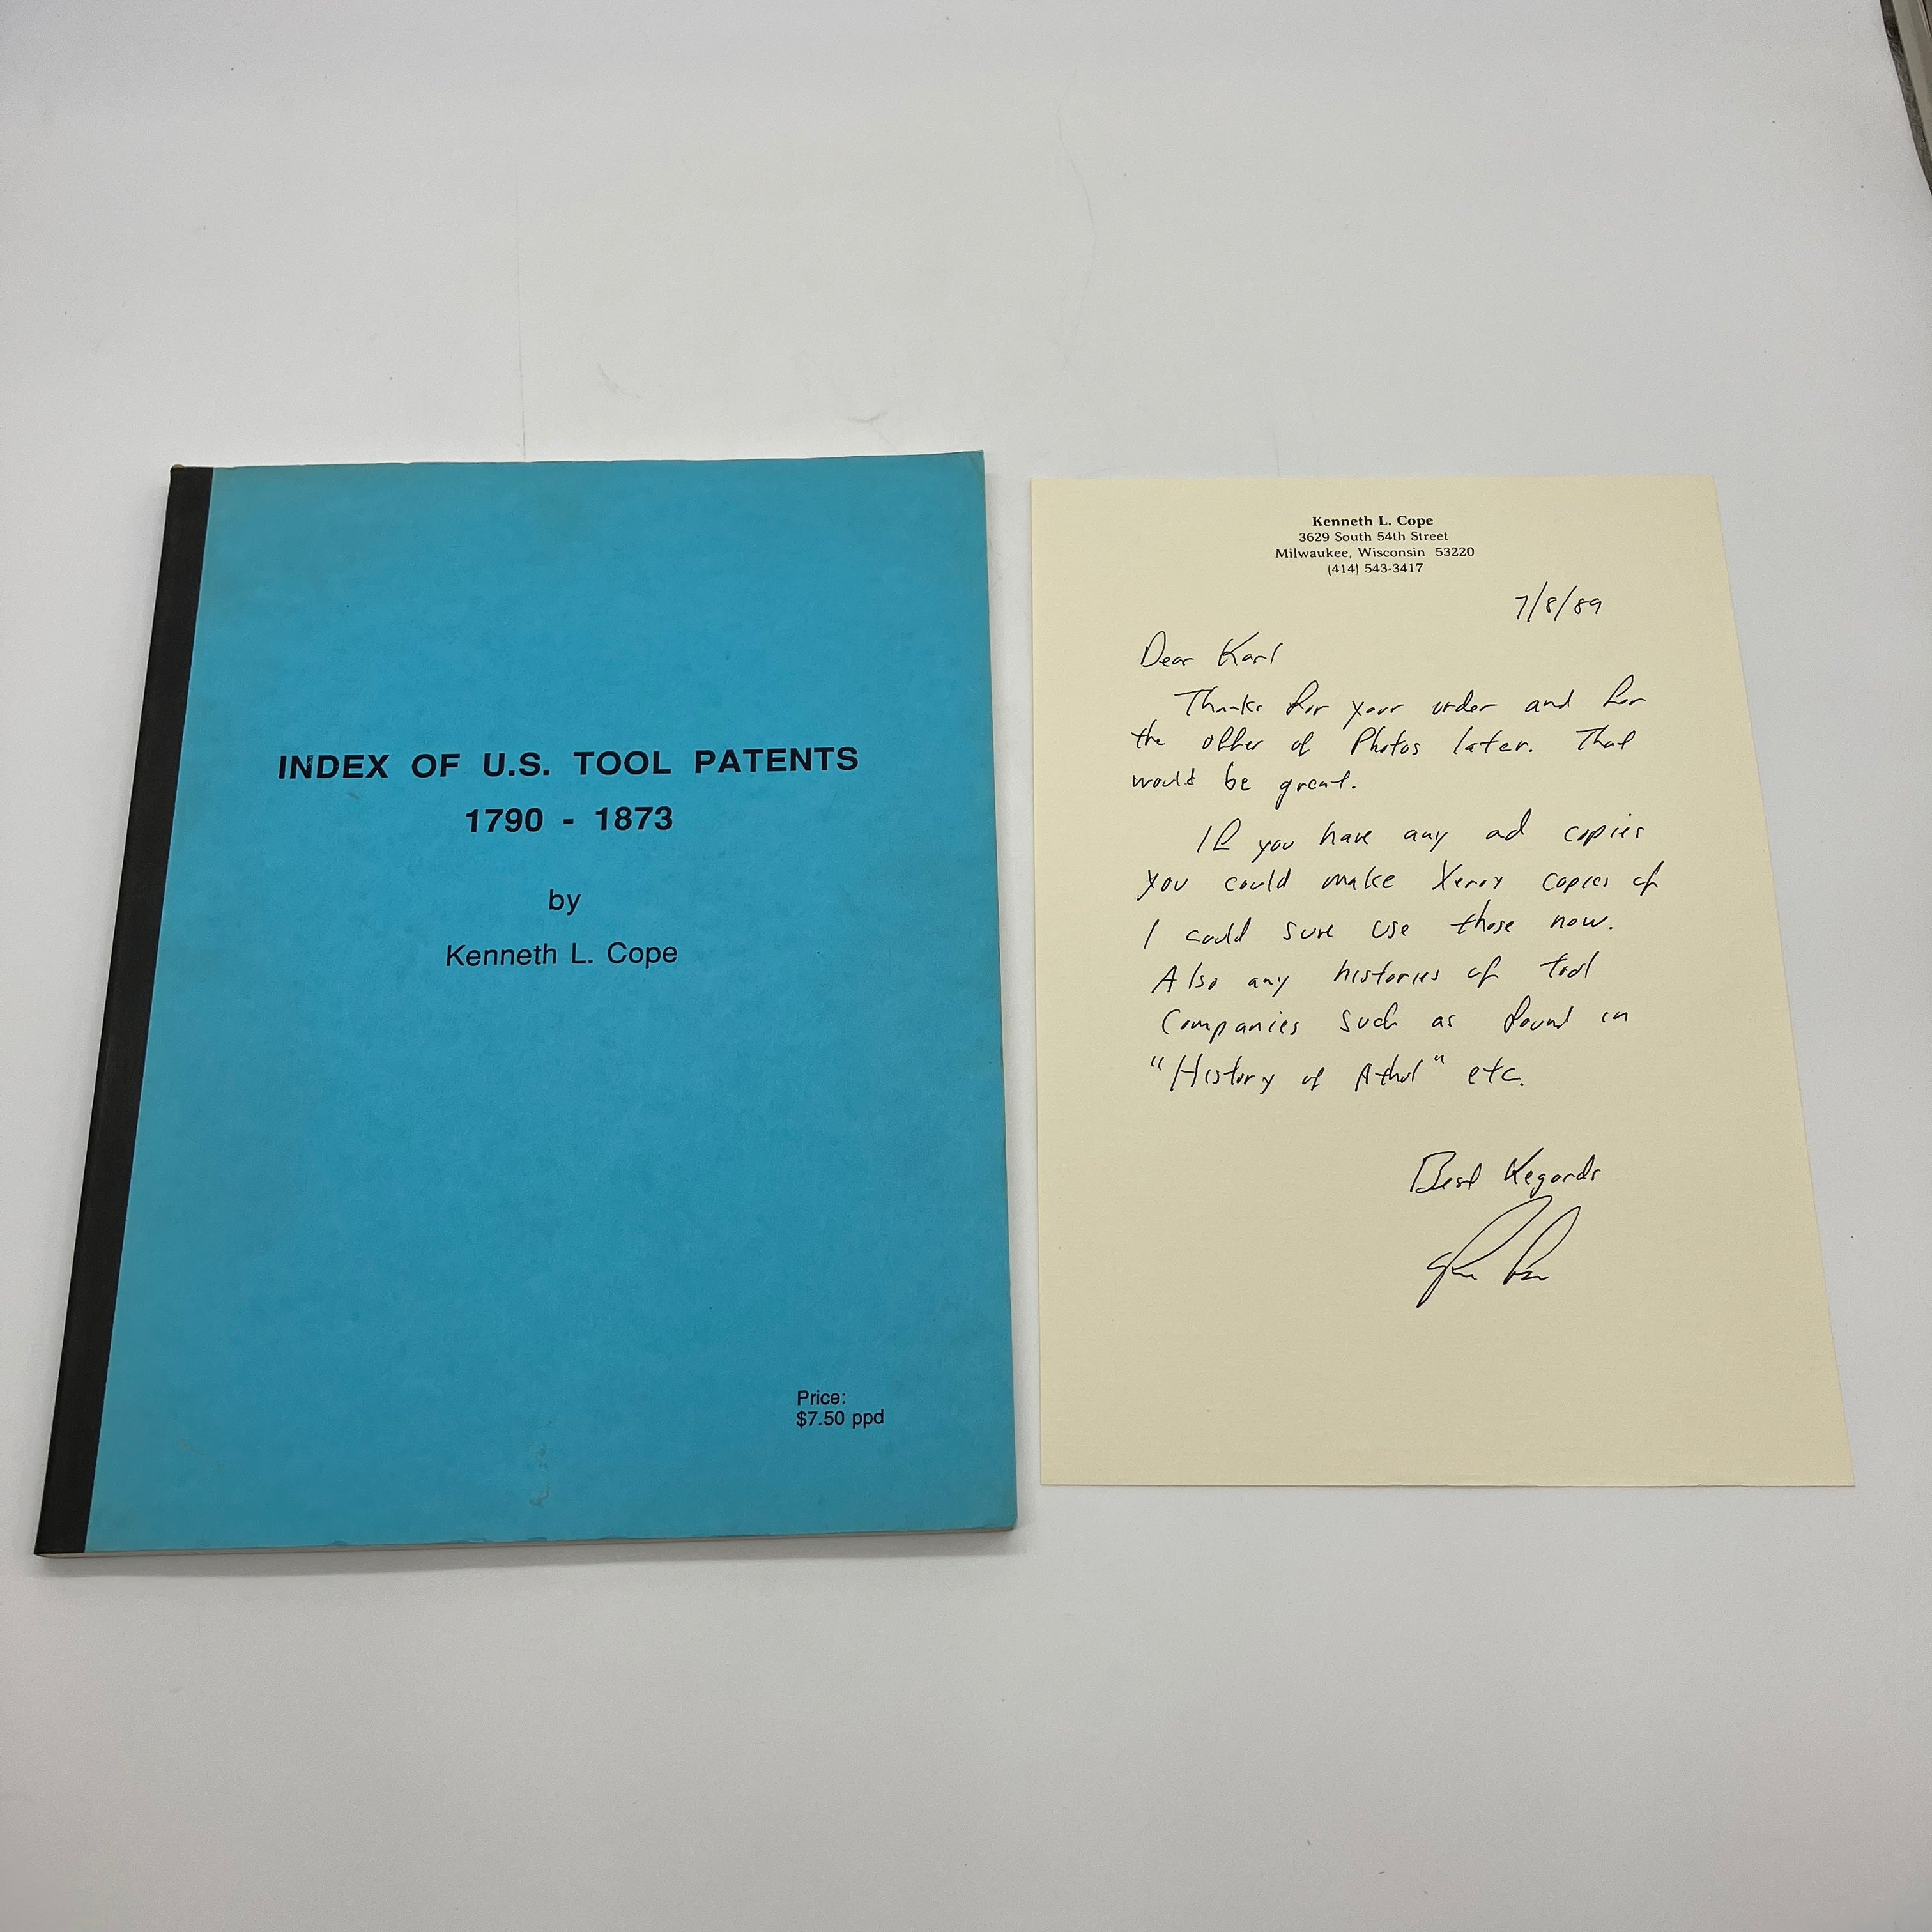 INDEX OF U.S. TOOL PATENTS
1790 - 1873
by
Kenneth L. Cope
Price:
$7.50 ppd
Kenneth L. Cope
3629 South 54th Street
Milwaukee, Wisconsin 53220
(414) 543-3417
7/8/89
Dear Karl
Thanks for your order and for
the offer of Photos later. That
would be great.
If you have any ad copies
you could make Xerox copies of
I could sure use those now.
Also any histories of tool
Companies such as found in
"History of Athol" etc.
Best Regards